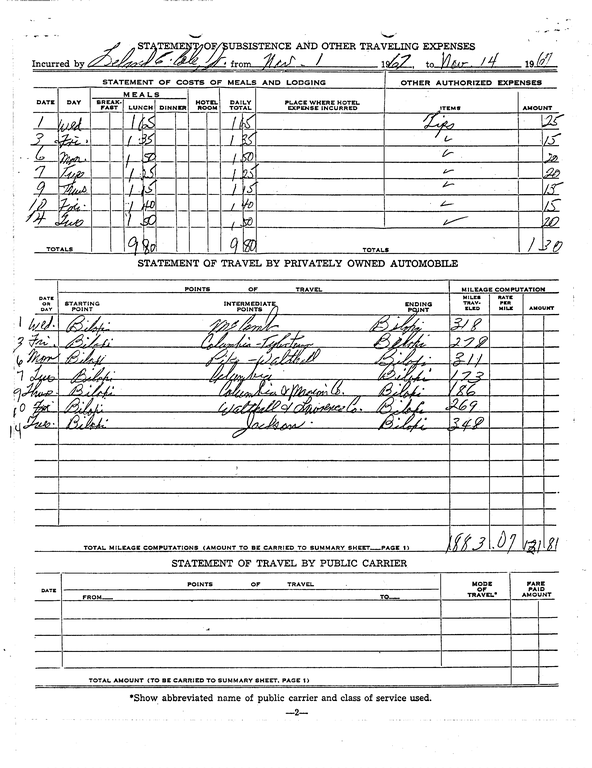 STATEMENT OF SUBSISTENCE AND OTHER TRAVELING EXPENSES
Incurred by from Nov. 1 1967, to Nov 14 1967
STATEMENT OF COSTS OF MEALS AND LODGING OTHER AUTHORIZED EXPENSES
MEALS
DATE DAY BREAK-FAST LUNCH DINNER HOTEL ROOM DAILY TOTAL PLACE WHERE HOTEL EXPENSE INCURRED ITEMS AMOUNT
1 Wed 1 65 1 65 Tips 25
3 Fri. 1 35 1 35 ✓ 15
6 Mon. 1 50 1 50 ✓ 20
7 Tues 1 25 1 25 ✓ 20
9 Thurs 1 15 1 15 ✓ 15
10 Fri. 1 40 1 40 ✓ 15
14 Tues 1 50 1 50 ✓ 20
TOTALS 9 80 9 80 TOTALS 1 30
STATEMENT OF TRAVEL BY PRIVATELY OWNED AUTOMOBILE
POINTS OF TRAVEL MILEAGE COMPUTATION
DATE OR DAY STARTING POINT INTERMEDIATE POINTS ENDING POINT MILES TRAV-ELED RATE PER MILE AMOUNT
1 Wed. Biloxi McComb Biloxi 318
3 Fri. Biloxi Columbia - Tylertown Biloxi 278
6 Mon Biloxi Pike - Walthall Biloxi 311
7 Tues Biloxi Columbia Biloxi 173
9 Thurs. Biloxi Columbia & Marion Co. Biloxi 186
10 Fri Biloxi Walthall & Lawrence Co. Biloxi 269
14 Tues. Biloxi Jackson Biloxi 348
TOTAL MILEAGE COMPUTATIONS (AMOUNT TO BE CARRIED TO SUMMARY SHEET—PAGE 1) 1883 .07 131.81
STATEMENT OF TRAVEL BY PUBLIC CARRIER
DATE POINTS OF TRAVEL MODE OF TRAVEL* FARE PAID AMOUNT
FROM— TO—
TOTAL AMOUNT (TO BE CARRIED TO SUMMARY SHEET. PAGE 1)
*Show abbreviated name of public carrier and class of service used.
—2—